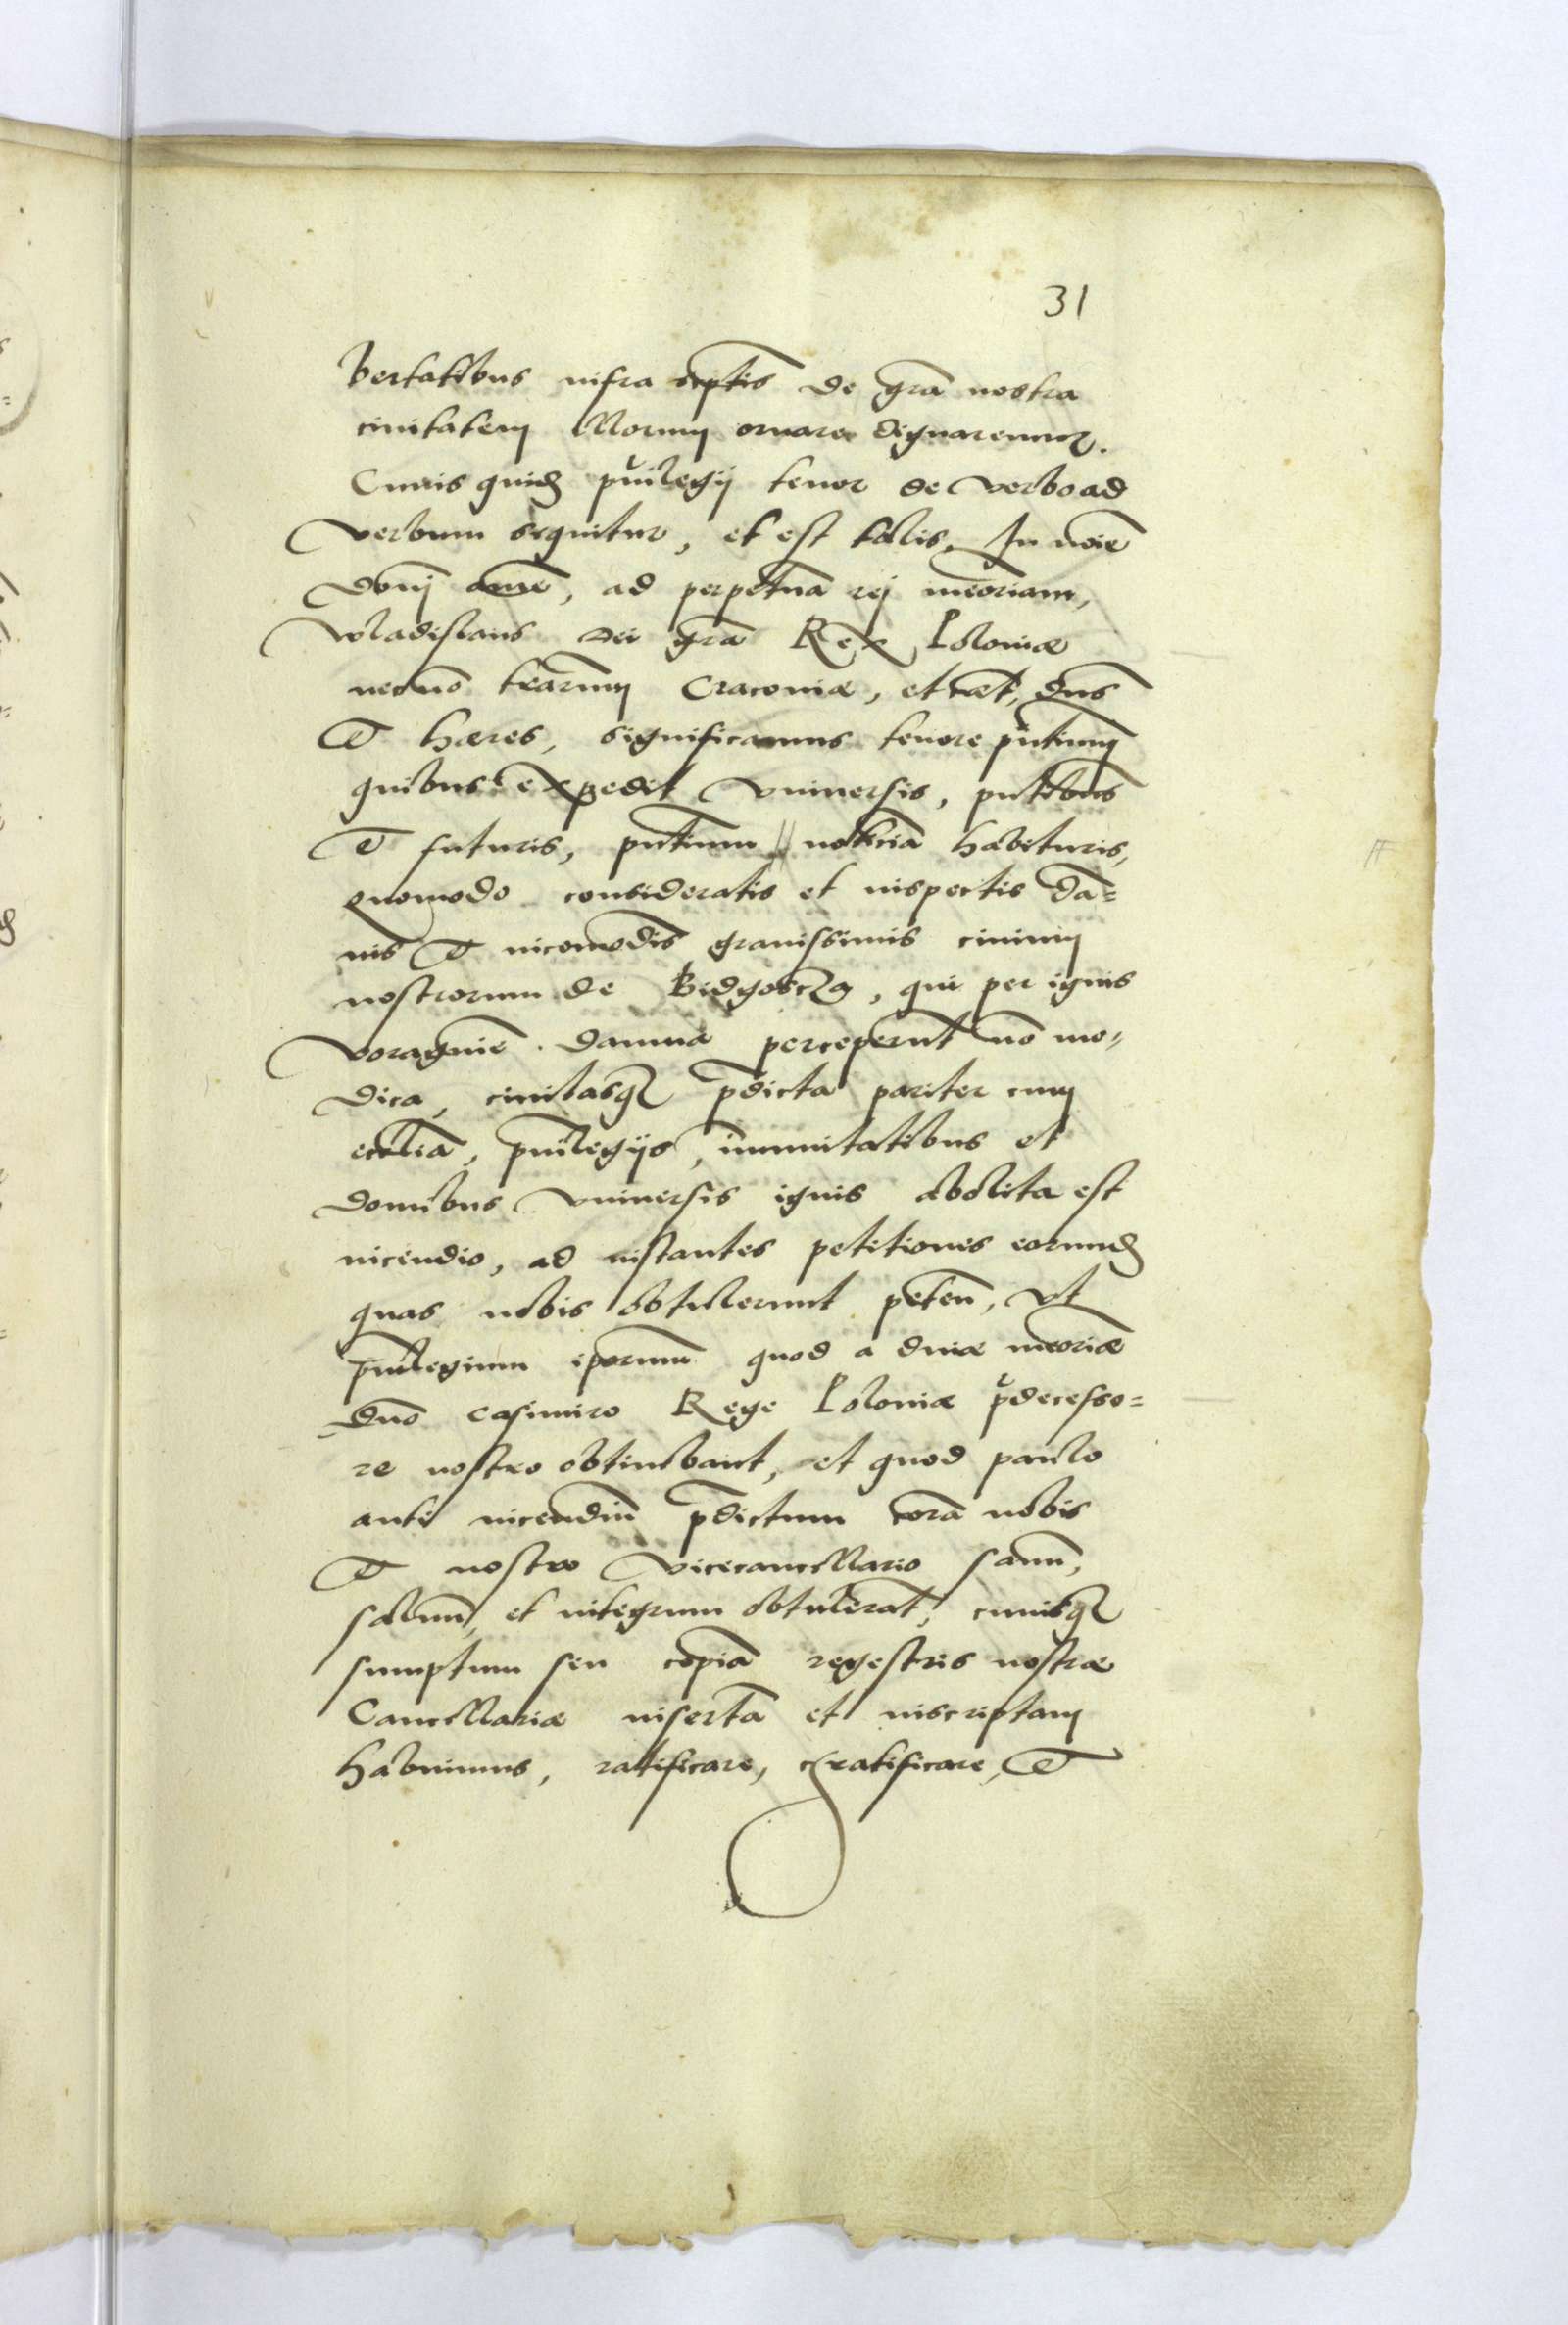 31
bertatibus infra scptis de grã nostra
civitatem illorum ornare dignaremur.
Cuius quid p̃uilegij tenor de verbo ad
verbum sequitur, et est talis. In noie
domj ame, ad perpetuã rej meoriam,
Wladislaus dei grã Rex Poloniæ
necnõ terarum Cracoviæ, et cæt, dns
et hæres, significamus tenore pñtium
quibus expedit vniversis, pñtibus
et futuris, pñtium noticiã habituris,
quomodo consideratis et inspectis da=
nis et incomodis gravissimis civium
nostrorum de Bidgoscza, qui per ignis
voraginẽ damna perceperũt nõ mo,
dica, civitasq pdicta pariter cum
ecclia, puilegijs, imunitatibus et
domibus vniversis ignis abolita est
incendio, ad instantes petitiones eorund
quas nobis obtulerunt petẽn, vt
puilegium iporum quod a divæ meoriæ
Dno Casimiro Rege Poloniæ pdecesso=
re nostro obtinebant, et quod paulo
ante incendiũ pdictum corã nobis
et nostro vicecancellario sanũ,
salvũ, et integrum obtulerãt, cuiusq
sumptum seu copiã regestris nostræ
Cancellariæ insertã et inscriptam
habuimus, ratificare, gratificare, et